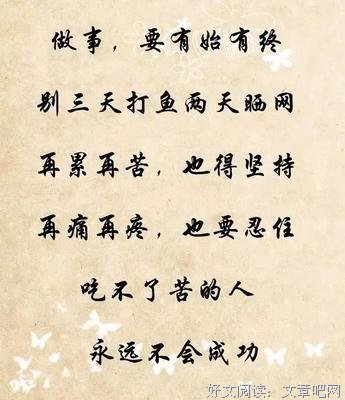 做事，要有始有终
别三天打鱼两天晒网
再累再苦，也得坚持
再痛再疼，也要忍住
吃不了苦的人
永远不会成功
好文阅读：文章吧网